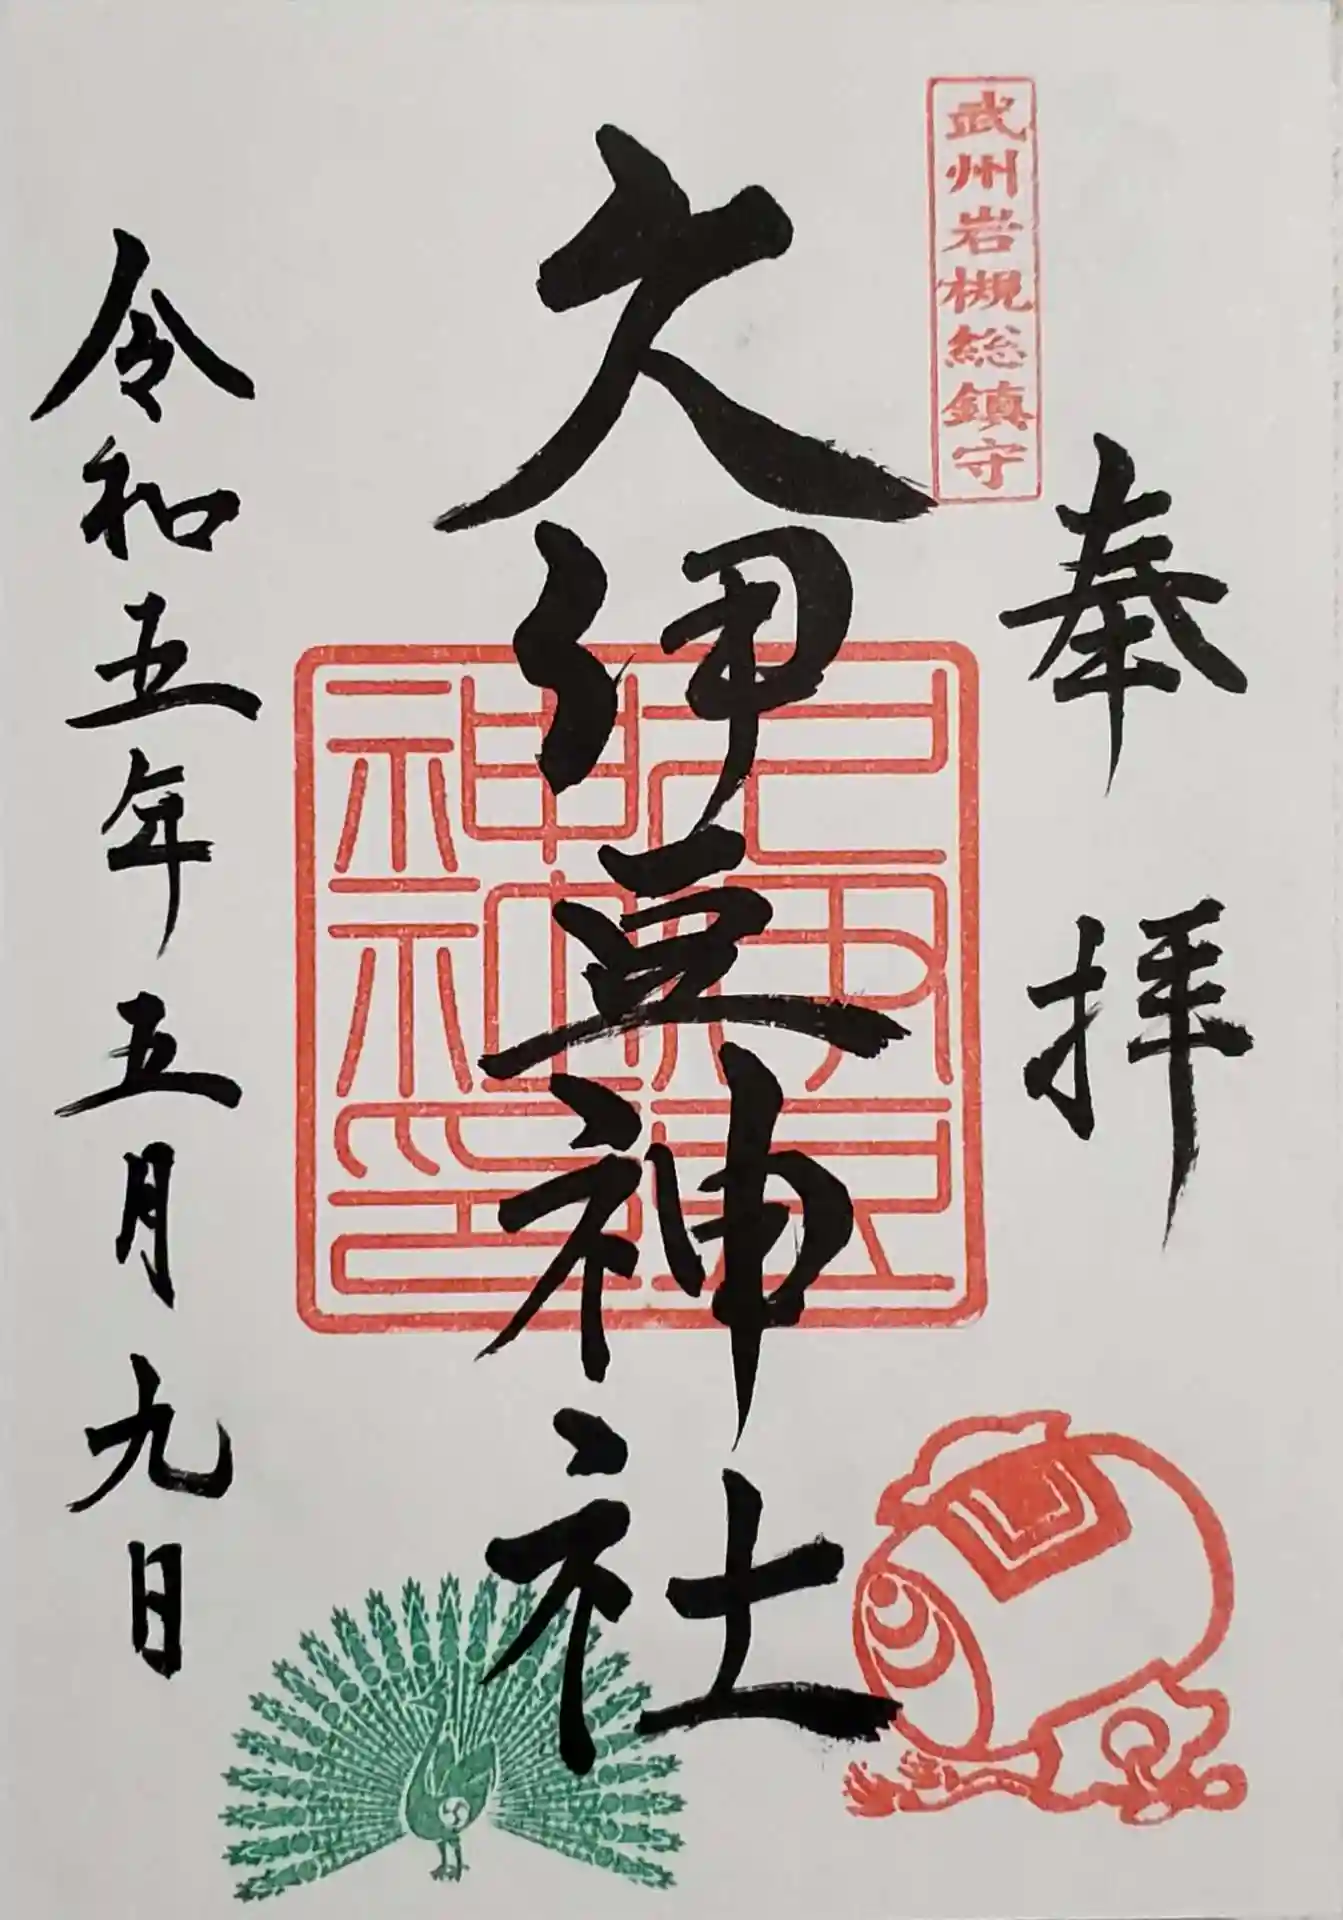 武州岩槻総鎮守
奉拝
久伊豆神社
久伊豆神社印
令和五年五月九日